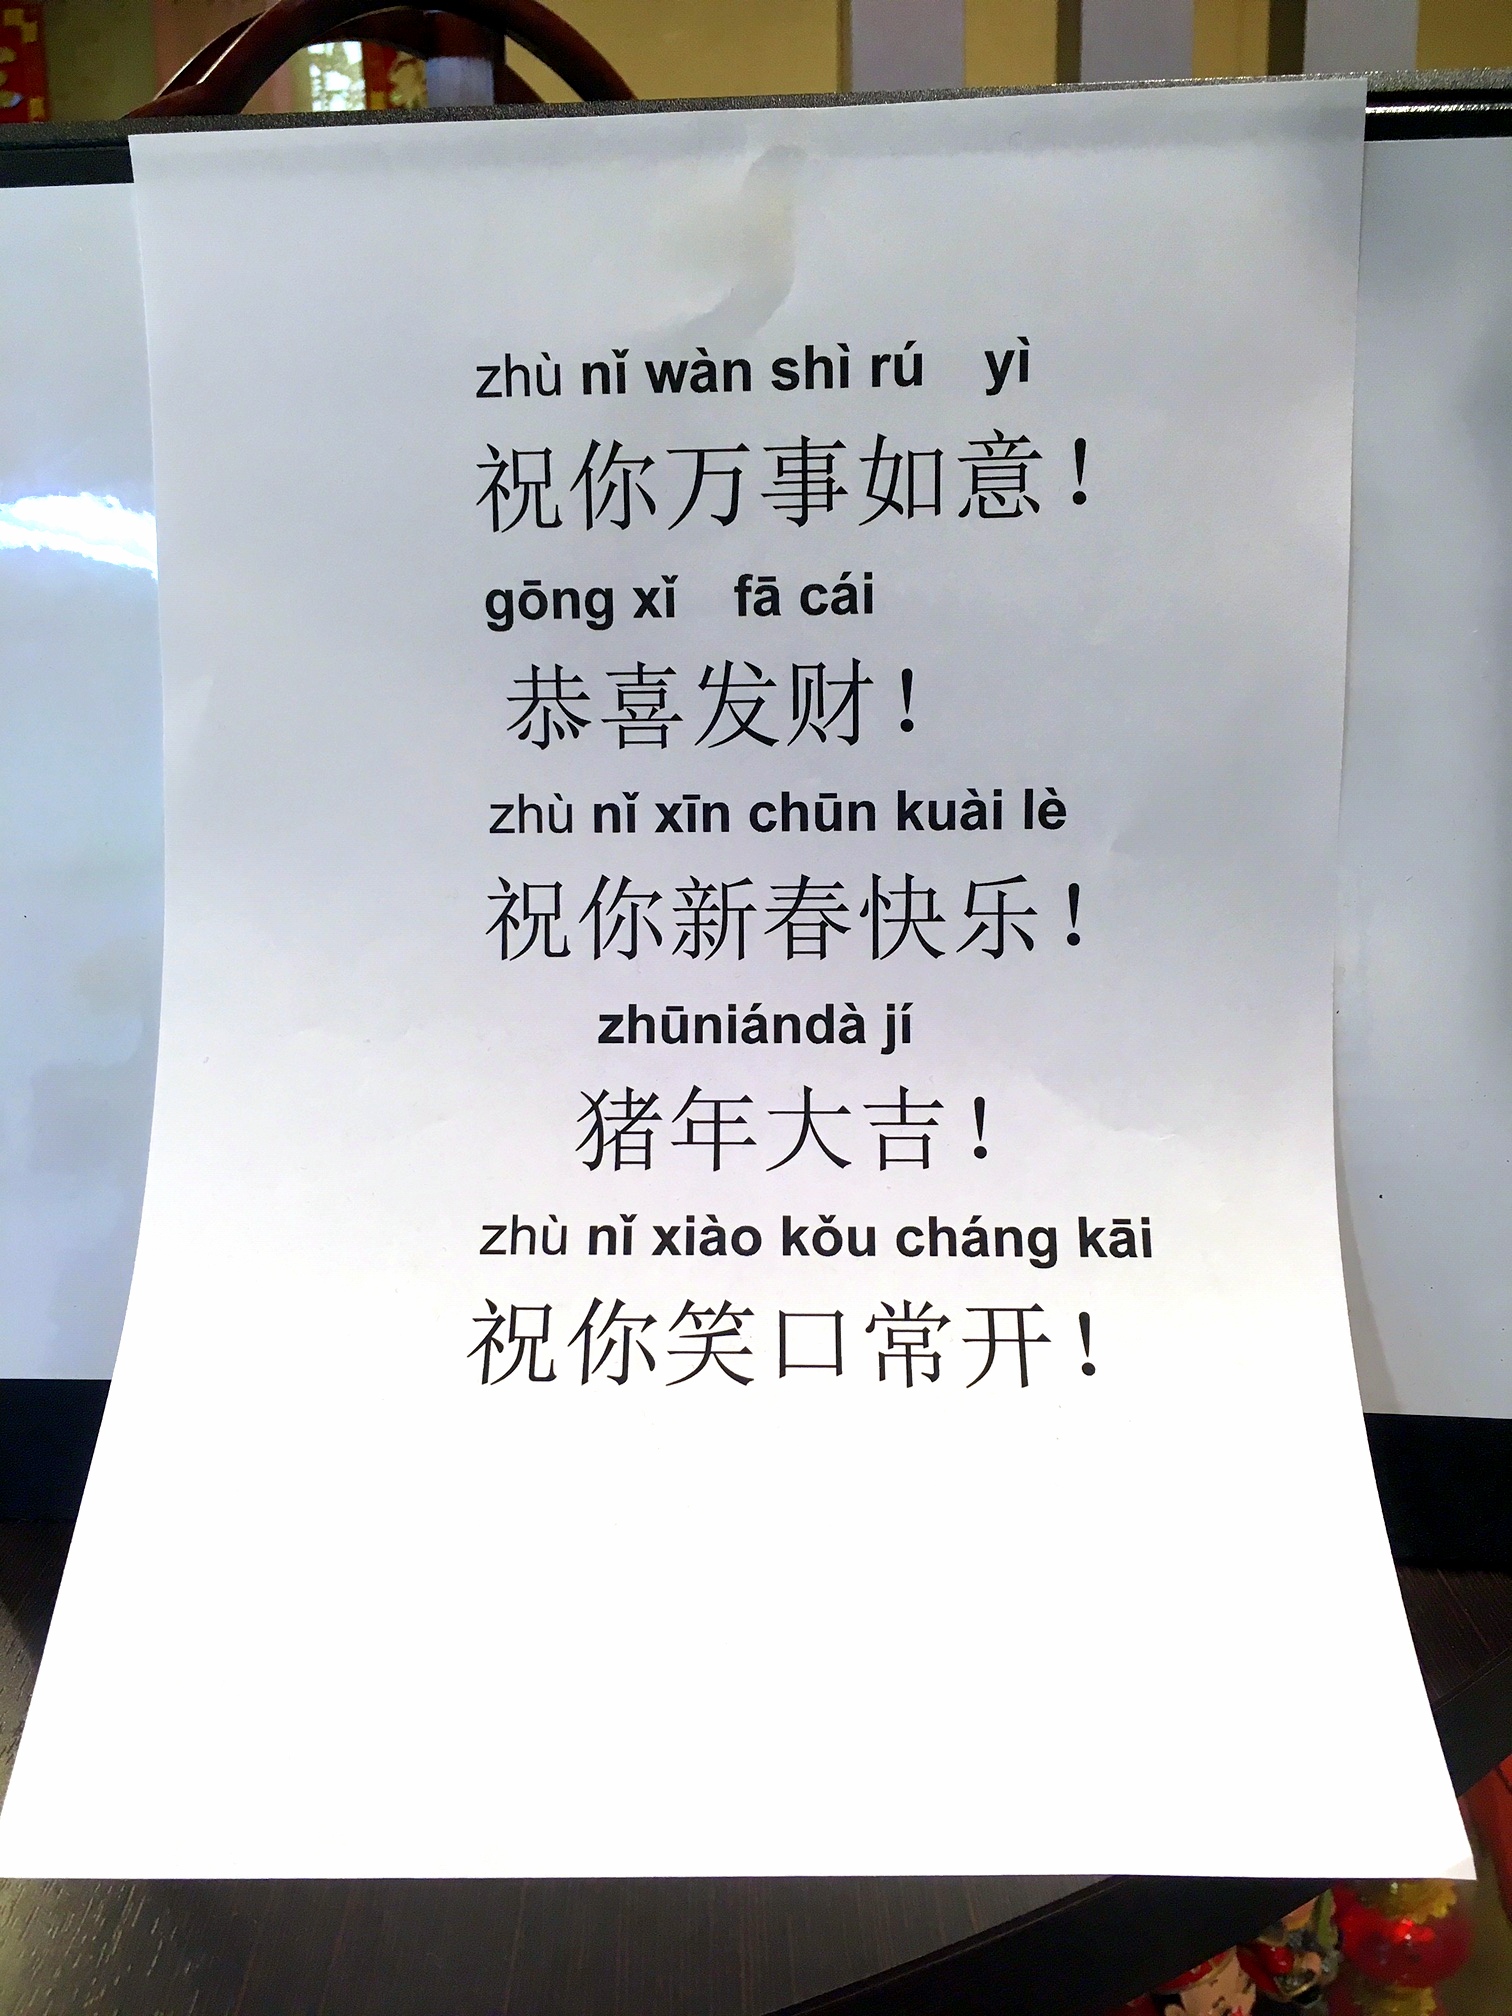 zhù nǐ wàn shì rú yì
祝你万事如意！
gōng xǐ fā cái
恭喜发财！
zhù nǐ xīn chūn kuài lè
祝你新春快乐！
zhūniándà jí
猪年大吉！
zhù nǐ xiào kǒu cháng kāi
祝你笑口常开！